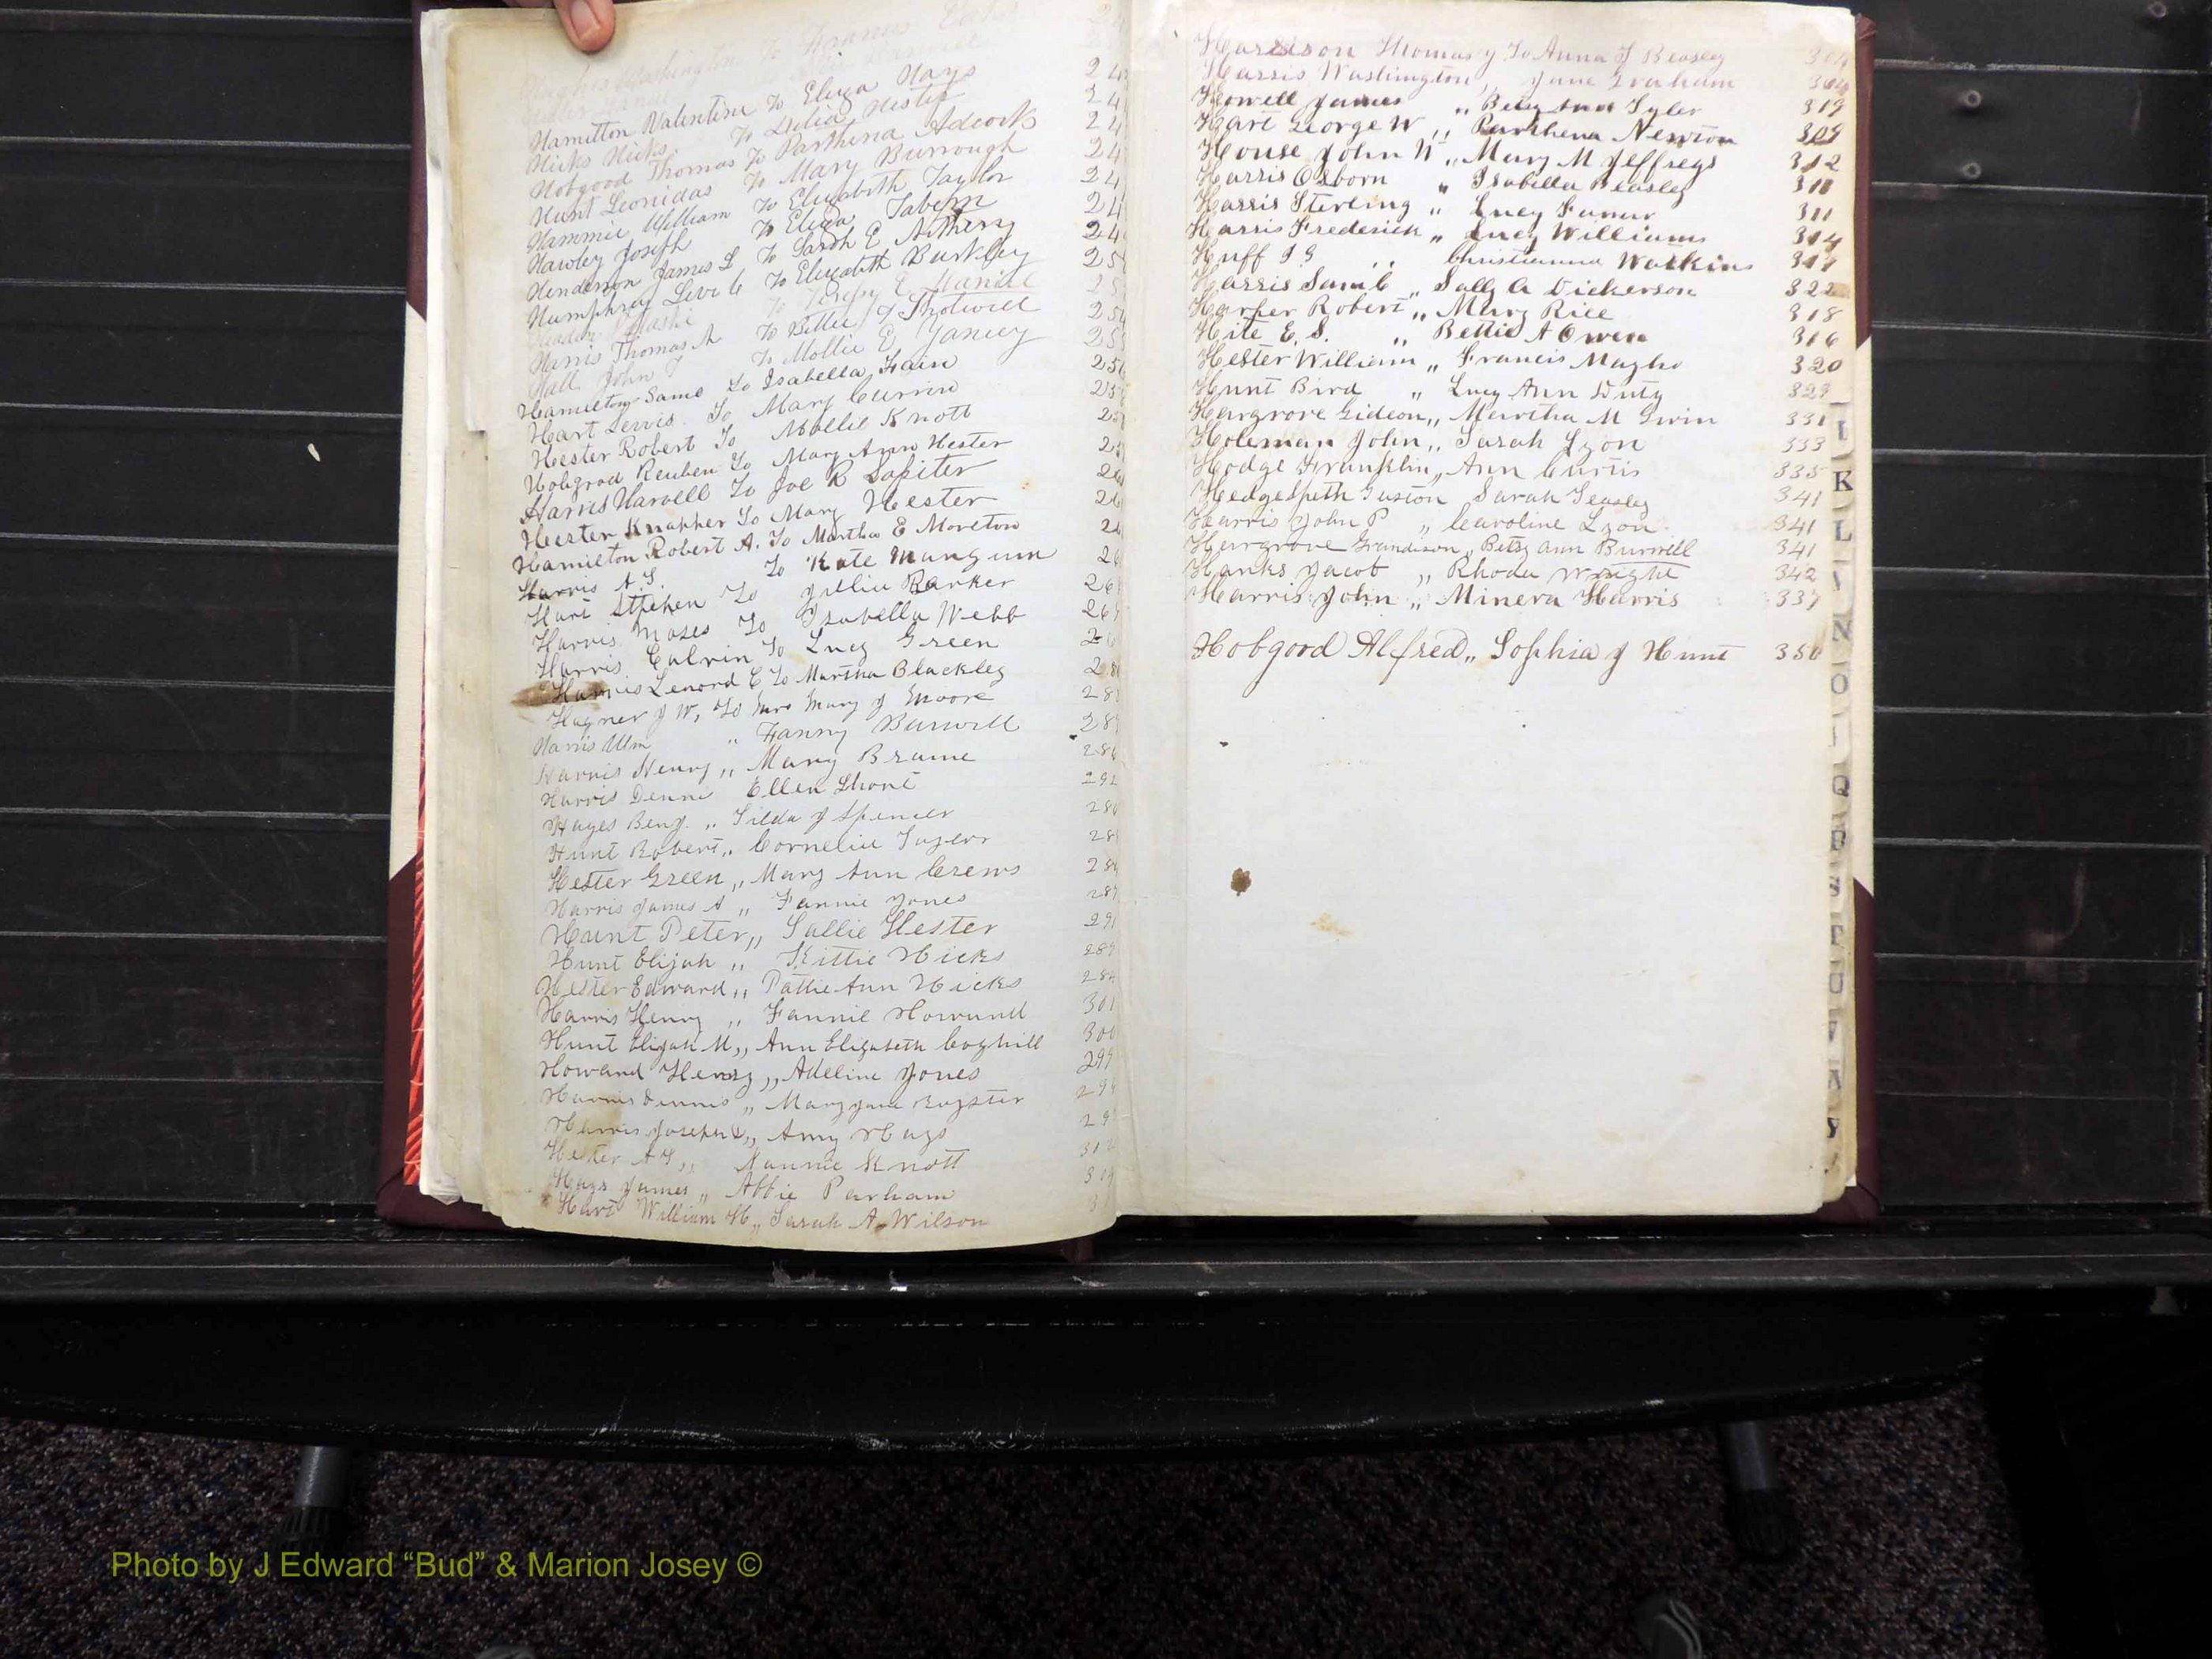 Hamilton Valentine To Eliza Hays 24
Hicks Hicks To Delia Hester 24
Hobgood Thomas To Parthena Adcock 24
Hunt Leonidas To Mary Burrough 24
Hammie William To Elizabeth Taylor 24
Hawley Joseph To Eliza Tabern 24
Henderson James L To Sarah E Anthony 24
Humphrey Levi C To Elizabeth Burkley 25
Harris Thomas A To Bettie J Shotwell 25
Hall John J To Mollie E Yancey 25
Hamilton Sams To Isabella Fain 256
Hart Lewis To Mary Currin 25
Hester Robert To Mollie Knott 25
Hobgood Reuben To Mary Ann Hester 25
Harris Harvell To Joe R Lasiter 26
Hester Knapher To Mary Hester 26
Hamilton Robert A. To Martha E Moreton 26
Harris A S. To Kate Mangum 26
Hart Stephen To Jillie Barker 26
Harris Moses To Isabella Webb 26
Harris Calvin To Lucy Green 26
Harris Lenord C To Martha Blackley 28
Hagner J W, To Mrs Mary J Moore 28
Harris Wm „ Fanny Burwell 28
Harris Henry „ Mary Brame 286
Harris Dennis Ellen Short 292
Hayes Benj. „ Tilda J Spencer 280
Hunt Robert „ Cornelia 28
Hester Green „ Mary Ann Crews 28
Harris James A „ Fannie Jones 28
Hunt Peter „ Sallie Hester 291
Hunt Elijah „ Kittie Hicks 289
Hester Edward „ Pattie Ann Hicks 28
Harris Henry „ Fannie Howard 301
Hunt Elijah M „ Ann Elizabeth Coghill 300
Howard Henry „ Adeline Jones 299
Harris Dennis „ Mary Jane Royster 29
Harris Joseph „ Amy Hays 29
Hester A S „ Nannie Knott 30
Hays James „ Abbie Parham 30
Hart William H „ Sarah A Wilson 3
Harrison Thomas J To Anna J Beasley 304
Harris Washington „ Jane Graham 304
Howell James „ Betsy Ann Tyler 319
Hart George W „ Parthena Newton 309
House John W „ Mary M Jeffreys 312
Harris Osborn „ Isabella Beasley 310
Harris Sterling „ Lucy Farrar 311
Harris Frederick „ Lucy Williams 314
Huff J S „ Christianna Watkins 317
Harris Sam C „ Sally A Dickerson 322
Harper Robert „ Mary Rice 318
Hite E. S. „ Bettie A Owen 316
Hester William „ Francis Mayho 320
Hunt Bird „ Lucy Ann Duty 323
Hargrove Gideon „ Martha M Gwin 331
Holeman John „ Sarah Lyon 333
Hodge Franklin „ Ann Curtis 335
Hedgespeth Guston Sarah Teasley 341
Harris John P „ Caroline Lyon 341
Hargrove Grandison „ Betsy Ann Burwell 341
Hanks Jacob „ Rhoda Wright 342
Harris John „ Minerva Harris 337
Hobgood Alfred „ Sophia J Hunt 350
K
L
N
O
Q
S
T
U
V
Photo by J Edward “Bud” & Marion Josey ©